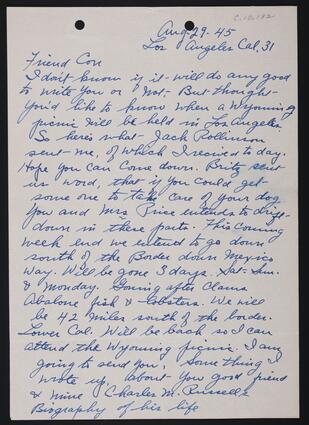 C.10.192
Aug-29-45
Los Angeles Cal, 31
Friend Con
I don't know if it will do any good
to write you or not, But thought
you'd like to know when a Wyoming
picnic will be held in Los Angeles
So here's what Jack Rollinson
sent me, of which I recived to day.
Hope you can come down. Britz sent
us word, that if you could get
some one to take care of your dog
you and Mrs Price intends to drive
down in these parts. This coming
week end we entend to go down
south of the Border down Mexico
Way. Will be gone 3 days. Sat-Sun.
& Monday. Going after Clams
Abalone fish & Lobsters. We will
be 42 miles south of the border.
Lower Cal. Will be back so I can
attend the Wyoming picnic. I am
going to send you, Some thing I
wrote up, about- You good friend
& mine Charles M. Russell's
Biography of his life